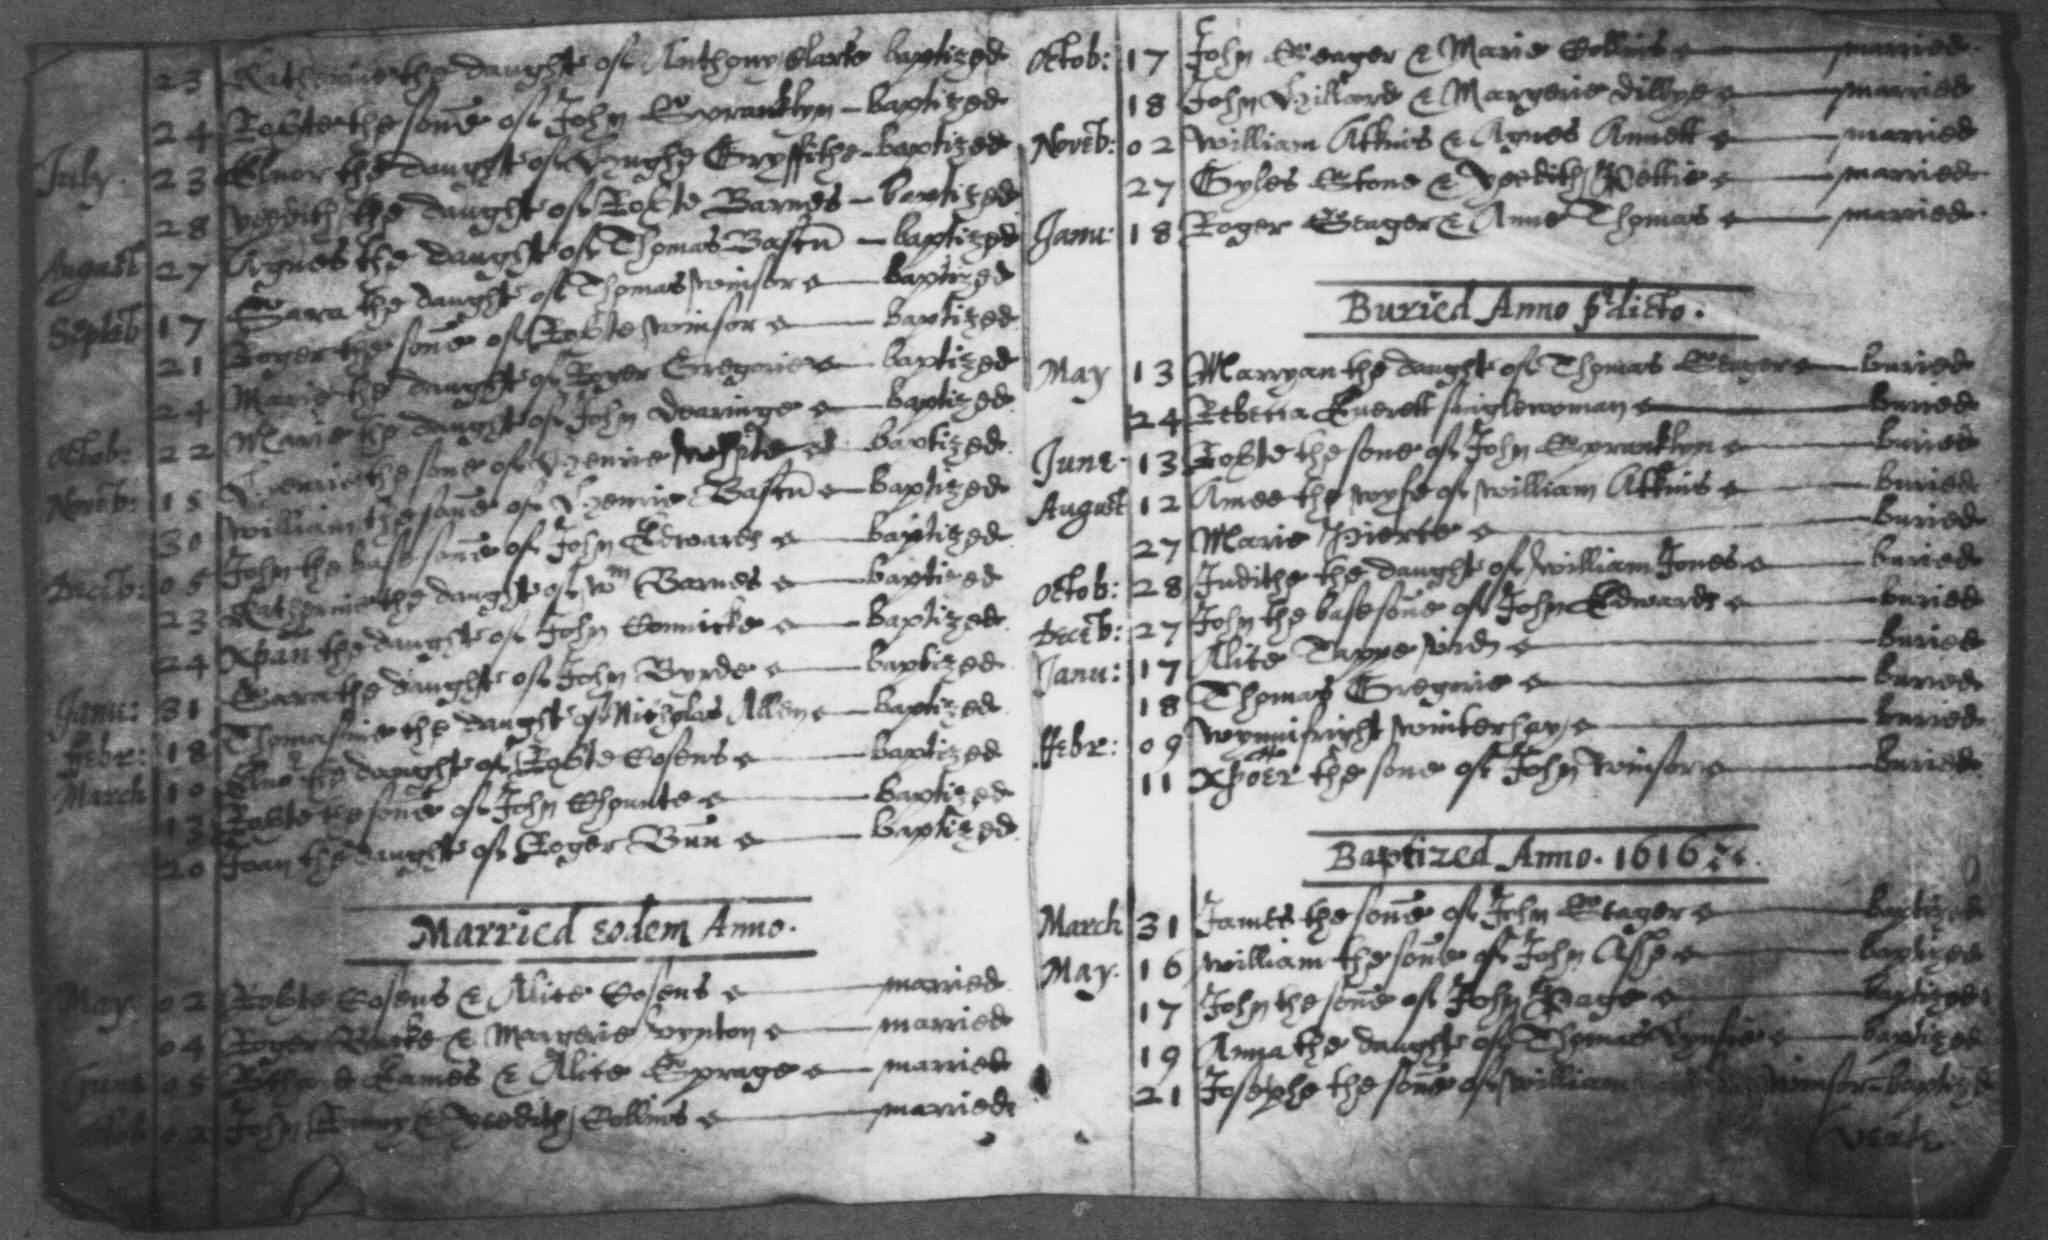 23 Katherine the daught of Anthony Clarke baptized
24 Robte the sone of John Sprancklyn baptized
July. 23 Elnor the daught of Hughe Gryffithe baptized
28 Edith the daught of Robte Barnes baptized
August 27 Agnes the daught of Thomas Bastn baptized
Septeb 17 Sara the daught of Thomas Winsor baptized
21 Roger the sone of Robte Winsor baptized
24 Marie the daught of Roger Gregorie baptized
Octob: 22 Marie the daught of John Dearinge baptized
Noveb: 15 Henrie the sone of Henrie White baptized
30 William the sone of Henrie Bastn baptized
Deceb: 05 John the base sone of John Edwards baptized
23 Katherine the daught of Wm Barnes baptized
24 Xpan the daught of John Connicke baptized
Janu: 31 Sara the daught of John Byrde baptized
Febr: 18 Thomasine the daught of Nicholas Allen baptized
March 10 the daught of Robte Cosens baptized
13 Robte the sone of John baptized
20 Joan the daught of Roger Bun baptized
Married eodem Anno.
May. 02 Robte Cosens & Alice Cosens married
04 Roger & Margerie Wynton married
June 05 Eames & Alice Sprage married
02 John & Edith Collins married
Octob: 17 John Seager & Marie Collins married
18 John Hillard & Margerie Dillye married
Noveb: 02 William Atkins & Agnes Annett married
27 Gyles Stone & Edith married
Janu: 18 Roger Seager & Anne Thomas married
Buried Anno pdicto.
May 13 Marryan the daught of Thomas Seager buried
24 Rebecca Everett singlewoman buried
June. 13 Robte the sone of John Sprancklyn buried
August 12 Amee the wyfe of William Atkins buried
27 Marie Pierce buried
Octob: 28 Judithe the daught of William Jones buried
Deceb: 27 John the base sone of John Edwards buried
Janu: 17 Alice Tappe buried
18 Thomas Gregorie buried
ffebr: 09 Wynnifright Winterhay buried
11 Xpoer the sone of John Winsor buried
Baptized Anno. 1616
March 31 James the sone of John Seager baptized
May. 16 William the sone of John Ashe baptized
17 John the sone of John Page baptized
19 Anna the daught of Thomas baptized
21 Josephe the sone of William Winsor baptized
verte